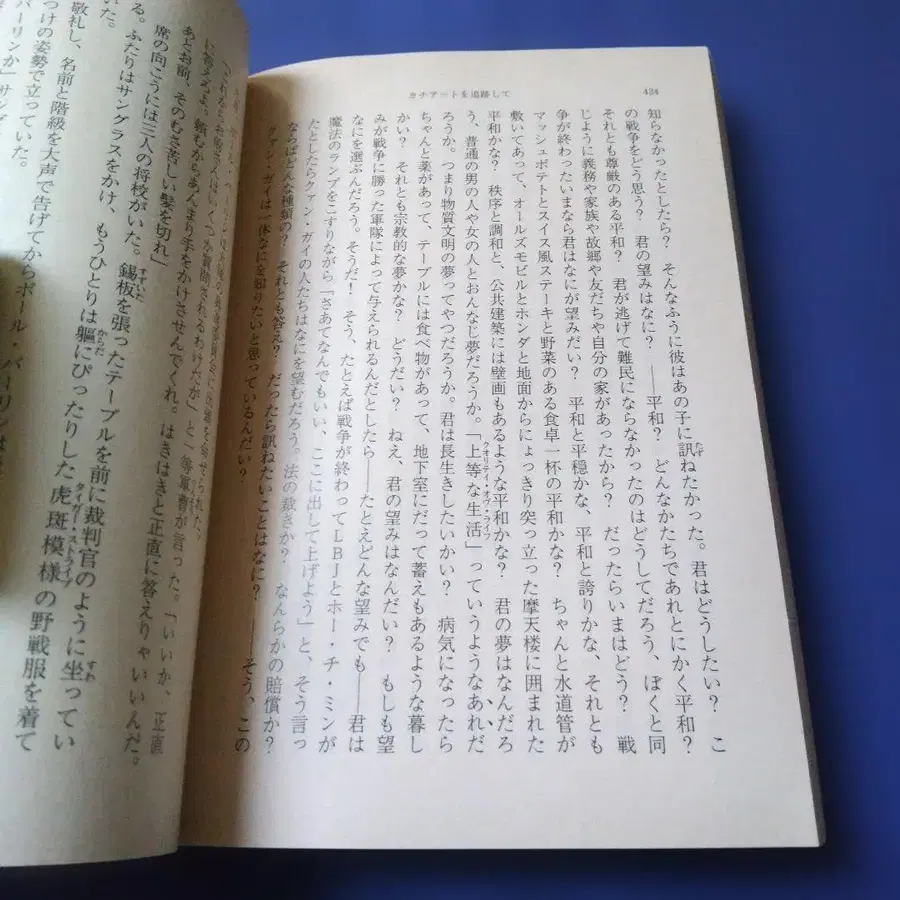 カチアートを追跡して
424
知らなかったとしたら？　そんなふうに彼はあの子に訊ねたかった。君はどうしたい？　こ
の戦争をどう思う？　君の望みはなに？　――平和？　どんなかたちであれとにかく平和？
それとも尊厳のある平和？　君が逃げて難民にならなかったのはどうしてだろう、ぼくと同
じように義務や家族や故郷や友だちや自分の家があったから？　だったらいまはどう？　戦
争が終わったいまなら君はなにが望みだい？　平和と平穏かな、平和と誇りかな、それとも
マッシュポテトとスイス風ステーキと野菜のある食卓一杯の平和かな？　ちゃんと水道管が
敷いてあって、オールズモビルとホンダと地面からにょっきり突っ立った摩天楼に囲まれた
平和かな？　秩序と調和と、公共建築には壁画もあるような平和かな？　君の夢はなんだろ
う、普通の男の人や女の人とおんなじ夢だろうか。「上等な生活」っていうようなあれだ
クオリティ・オヴ・ライフ
ろうか。つまり物質文明の夢ってやつだろうか。君は長生きしたいかい？　病気になったら
ちゃんと薬があって、テーブルには食べ物があって、地下室にだって蓄えもあるような暮し
かい？　それとも宗教的な夢かな？　どうだい？　ねえ、君の望みはなんだい？　もしも望
みが戦争に勝った軍隊によって与えられるんだとしたら――たとえどんな望みでも――君は
なにを選ぶんだろう。そうだ！　そう、たとえば戦争が終わってＬＢＪとホー・チ・ミンが
魔法のランプをこすりながら「さあてなんでもいい、ここに出して上げよう」と、そう言っ
たとしたらクァン・ガイの人たちはなにを望むだろう。法の裁きか？　なんらかの賠償か？
ならばどんな種類の？　それとも答え？　だったら訊ねたいことはなに？　――そう、この
クァン・ガイは一体なにを知りたいと思っているんだい？
に答えろよ。頼むからあんまり手をかけさせんでくれ。はきはきと正直に答えりゃいいんだ。
あとお前、そのむさ苦しい髪を切れ」
席の向こうには三人の将校がいた。錫板を張ったテーブルを前に裁判官のように坐ってい
すずいた
すわ
る。ふたりはサングラスをかけ、もうひとりは軀にぴったりした虎斑模様の野戦服を着て
からだ
タイガー・ストライプ
いた。
敬礼し、名前と階級を大声で告げてからポール・バーリンは
つけの姿勢で立っていた。